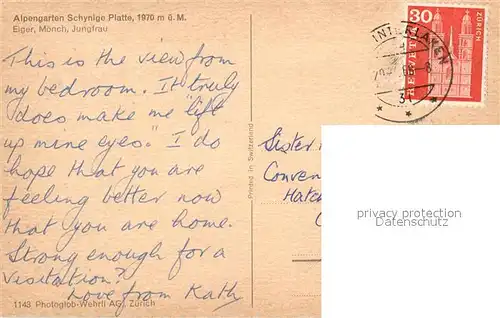 Alpengarten Schynige Platte, 1970 m ü. M.
Eiger, Mönch, Jungfrau
This is the view from
my bedroom. It truly
does make me "lift
up mine eyes." I do
hope that you are
feeling better now
that you are home.
Strong enough for a
visitation?
Love from Kath
1143 Photoglob-Wehrli AG, Zürich
Printed in Switzerland
INTERLAKEN
30
HELVETIA
ZÜRICH
Sister
Conven
Hatc
privacy protection
Datenschutz